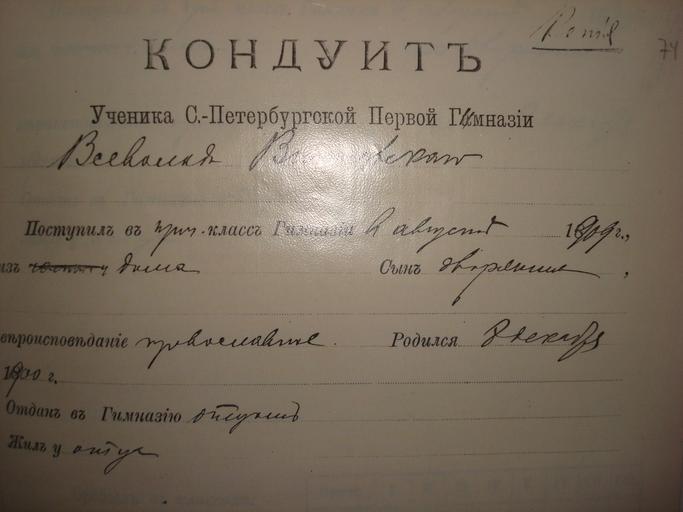 74
КОНДУИТЪ
Ученика С.-Петербургской Первой Гимназіи
Всеволода
Поступилъ въ приг. классъ Гимназіи августа 1909 г.,
изъ дома Сынъ дворянина,
вѣроисповѣданіе православное. Родился 8 декабря
1900 г.
Отданъ въ Гимназію отцомъ
Жилъ у отца